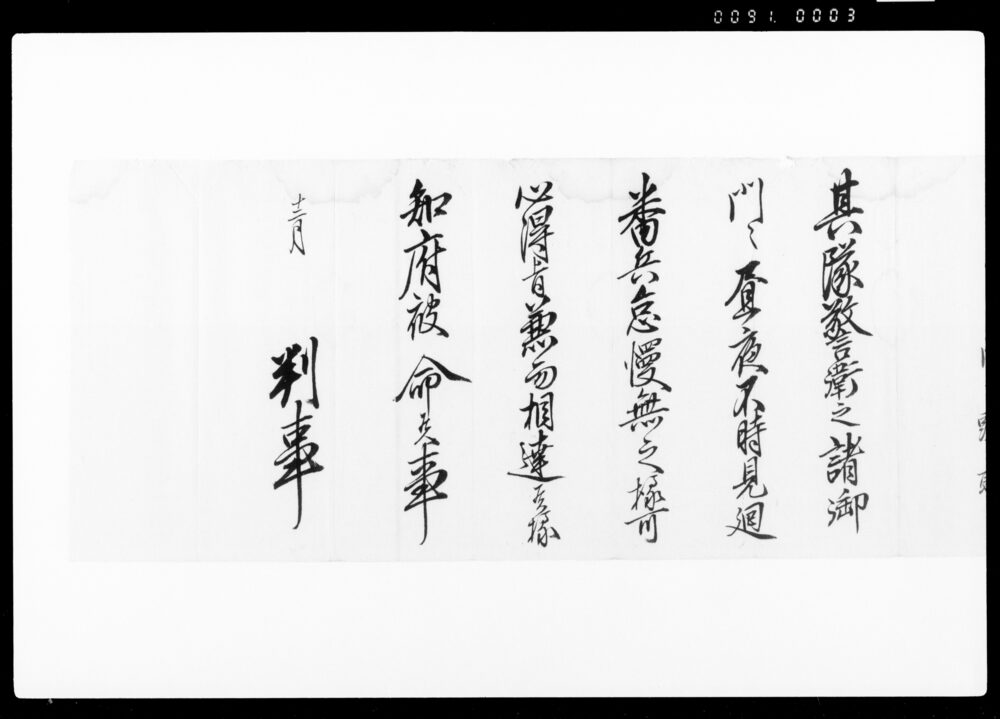 0091. 0003
其隊警衛之諸御
門々昼夜不時見廻
番兵怠慢無之様可
心得旨兼而相達候様
知府被　命候事
十二月
判事